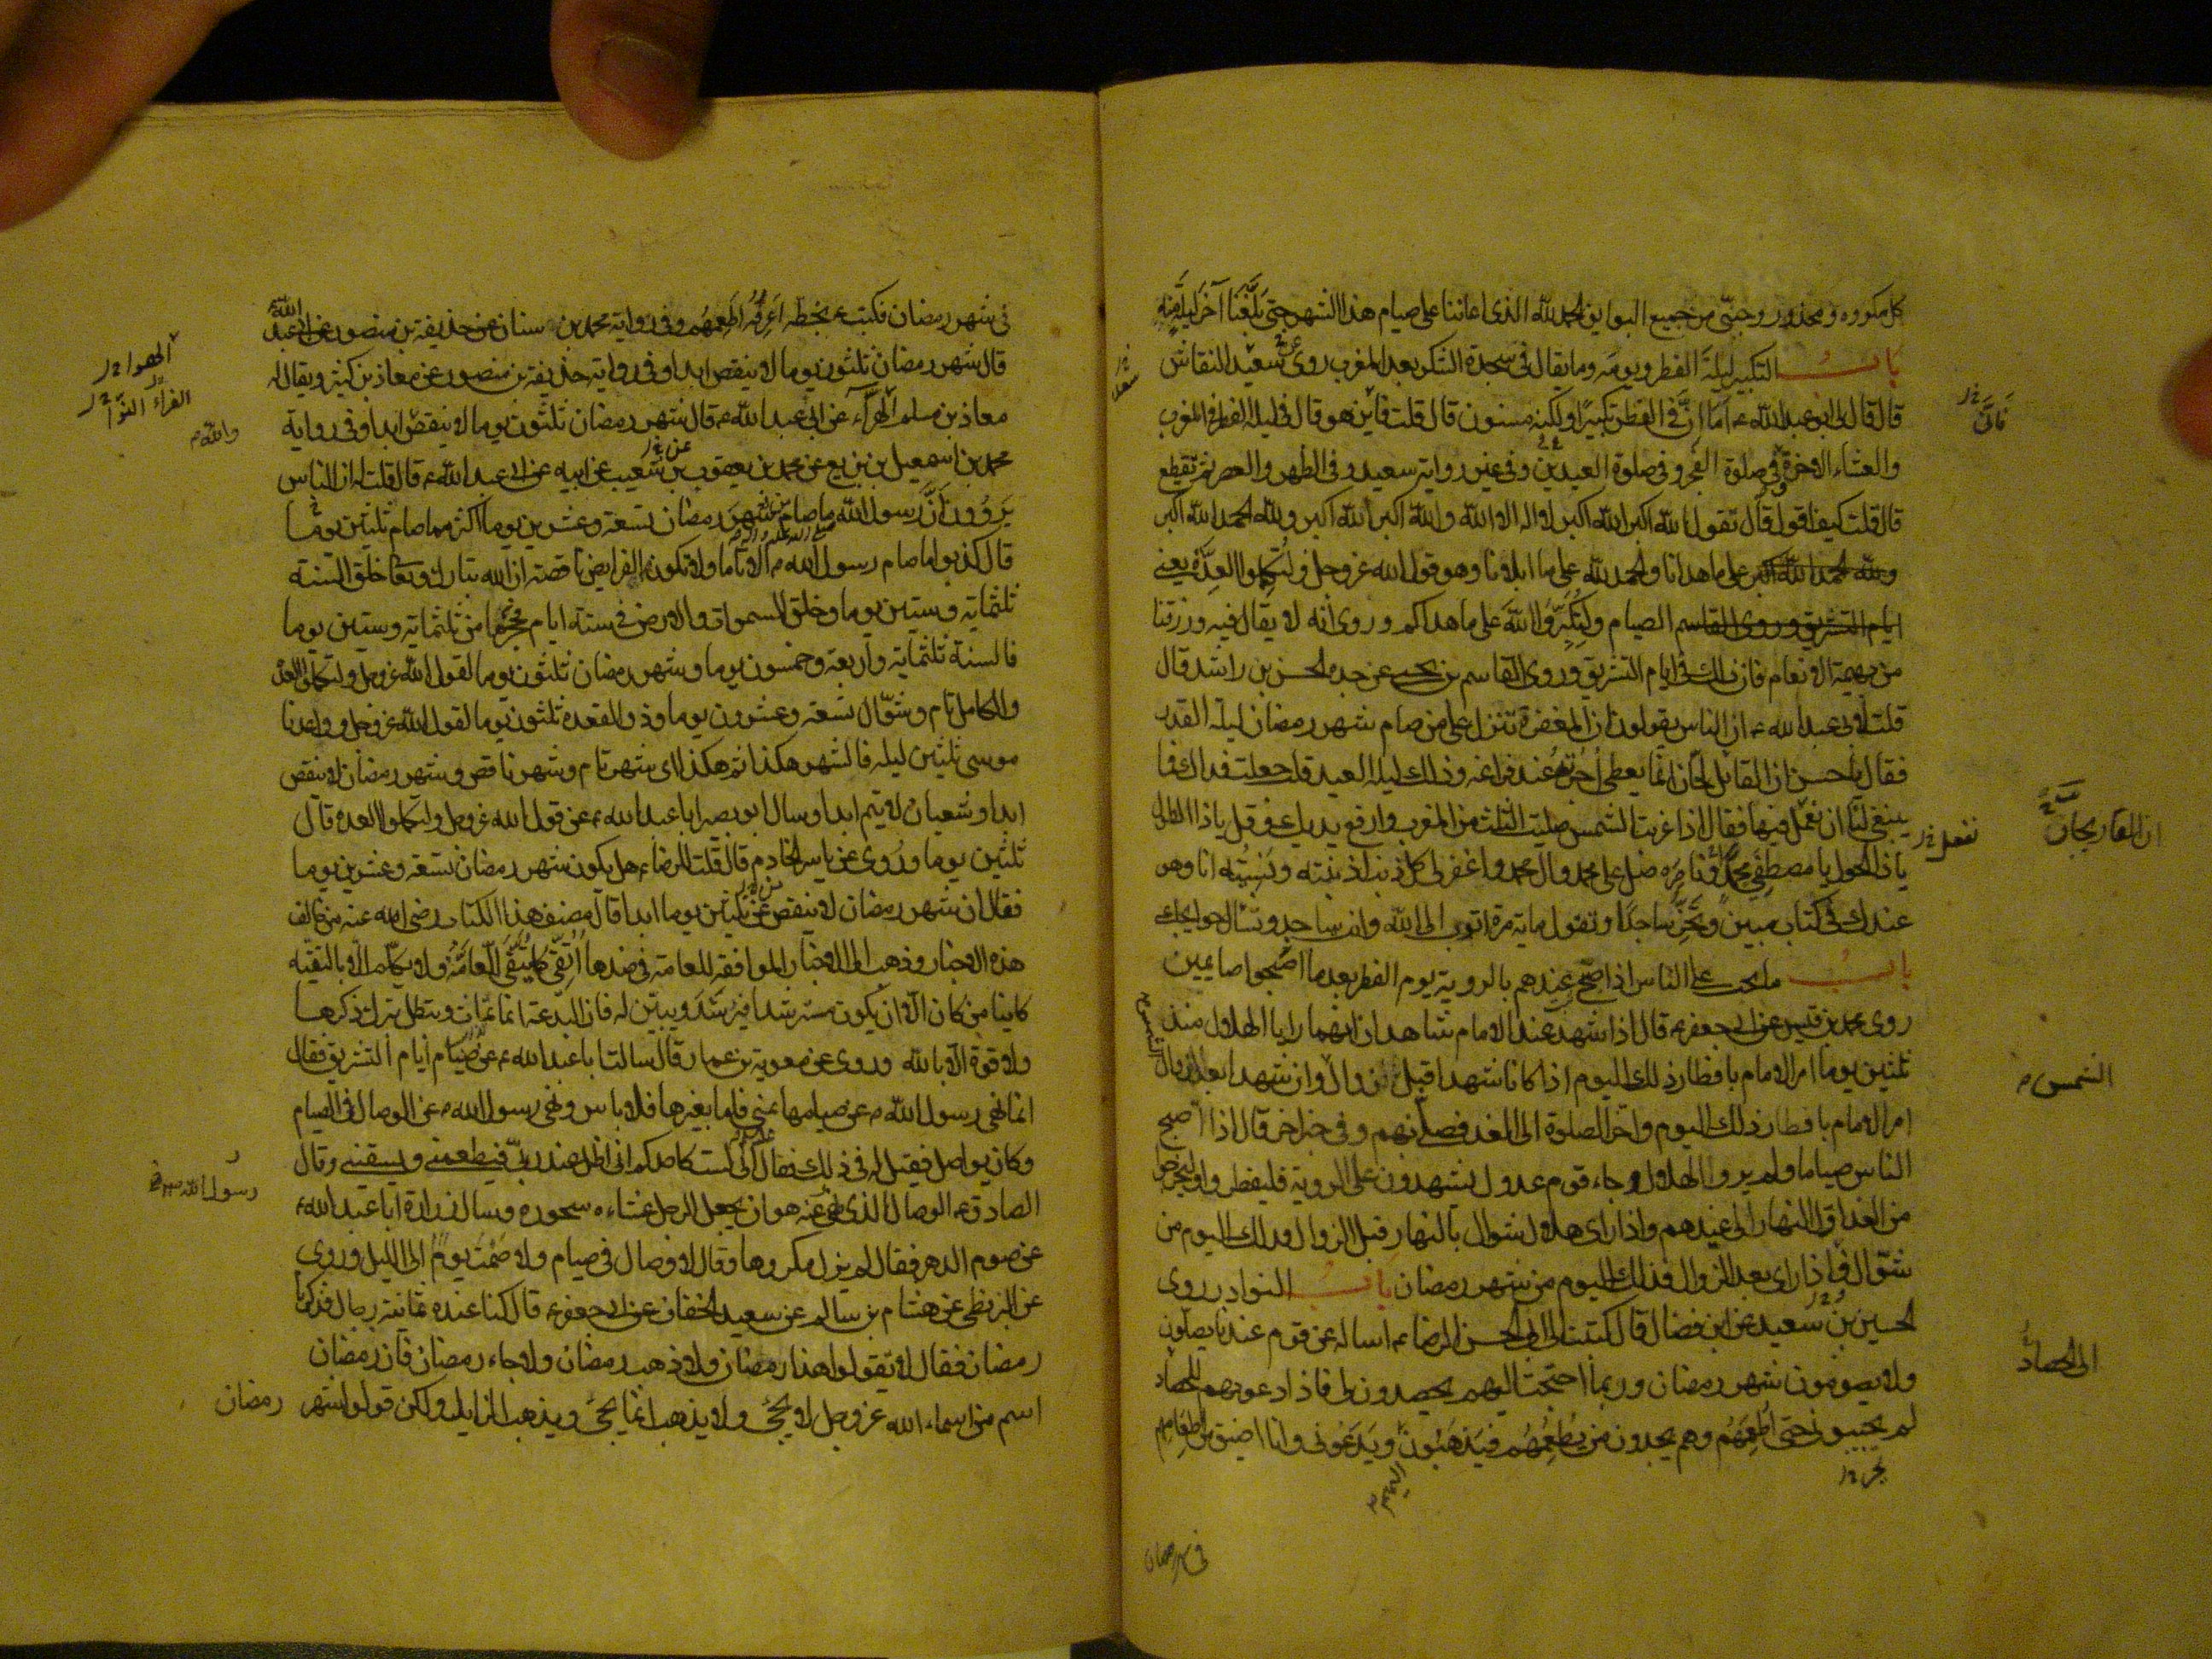 كل مكروه ومحذور وجنبني من جميع البوايق الحمد لله الذى اعاننا على صيام هذا الشهر حتى بلغنا آخر ليلة منه
باب التكبير ليلة الفطر ويومه وما يقال فى سجدة الشكر بعد المغرب روى سعيد النقاش
قال قال لى ابو عبد الله ع اما ان فى الفطر تكبيرا ولكنه مسنون قال قلت فاين هو قال فى ليلة الفطر فى المغرب
والعشاء الاخرة وفى صلوة الفجر وفى صلوة العيدين وفى غير رواية سعيد وفى الظهر والعصر ثم تقطع
قال قلت كيف اقول قال تقول الله اكبر الله اكبر لا اله الا الله والله اكبر الله اكبر ولله الحمد الله اكبر
على ما هدانا والحمد لله على ما ابلانا وهو قول الله عز وجل ولتكملوا العدة يعنى
الصيام ولتكبروا الله على ما هداكم وروى انه لا يقال فيه ورزقنا
من بهيمة الانعام فان ذلك فى ايام التشريق وروى القاسم بن يحيى عن جده الحسن بن راشد قال
قلت لابى عبد الله ع ان الناس يقولون ان المغفرة تنزل على من صام شهر رمضان ليلة القدر
فقال يا حسن ان القايل لحان انما يعطى اجرته عند فراغه وذلك ليلة العيد قلت جعلت فداك فما
ينبغى لنا ان نعمل فيها فقال اذا غربت الشمس صليت الثلث من المغرب وارفع يديك وقل يا ذا الطول
يا ذا الحول يا مصطفى محمد وناصره صل على محمد وال محمد واغفر لى كل ذنب اذنبته ونسيته انا وهو
عندك فى كتاب مبين وتخر ساجدا وتقول ماية مرة اتوب الى الله وانت ساجد وتسال حوايجك
باب ما يجب على الناس اذا صح عندهم بالروية يوم الفطر بعد ما اصبحوا صايمين
روى محمد بن قيس عن ابى جعفر ع قال اذا شهد عند الامام شاهدان انهما رايا الهلال منذ
ثلثين يوما امر الامام بافطار ذلك اليوم اذا كانا شهدا قبل الزوال وان شهدا بعد الزوال
امر الامام بافطار ذلك اليوم واخر الصلوة الى الغد فصلى بهم وفى خبر اخر قال اذا اصبح
الناس صياما ولم يروا الهلال وجاء قوم عدول يشهدون على الروية فليفطروا وليخرجوا
من الغد اول النهار الى عيدهم واذا راى هلال شوال بالنهار قبل الزوال فذلك اليوم من
شوال فاذا راى بعد الزوال فذلك اليوم من شهر رمضان باب النوادر روى
الحسين بن سعيد عن ابن فضال قال كتبت الى ابى الحسن الرضا ع اساله عن قوم عندنا يصلون
ولا يصومون شهر رمضان وربما احتجت اليهم يحصدون لى فاذا دعوتهم للحصاد
لم يجيبونى حتى اطعمهم وهم يجدون من يطعمهم فيذهبون ويدعونى وانا اضيق من اطعامهم
فى شهر رمضان
الشمس
الى الحصاد
نعمل
فى شهر رمضان فكتب ع بخطه اعرفه اطعمهم وفى رواية محمد بن سنان عن حذيفة بن منصور عن ابى عبد الله
قال شهر رمضان ثلثون يوما لا ينقص ابدا وفى رواية حذيفة بن منصور عن معاذ بن كثير ويقال له
معاذ بن مسلم الهراء عن ابى عبد الله ع قال شهر رمضان ثلثون يوما لا ينقص ابدا وفى رواية
محمد بن اسمعيل بن بزيع عن محمد بن يعقوب بن شعيب عن ابيه عن ابى عبد الله ع قال قلت له ان الناس
يروون ان رسول الله ما صام من شهر رمضان تسعة وعشرين يوما اكثر مما صام ثلثين يوما
قال كذبوا ما صام رسول الله الا تاما ولا تكون الفرايض ناقصة ان الله تبارك وتعالى خلق السنة
ثلثماية وستين يوما وخلق السموات والارض فى ستة ايام فحجزها من ثلثماية وستين يوما
فالسنة ثلثماية واربعة وخمسون يوما وشهر رمضان ثلثون يوما لقول الله عز وجل ولتكملوا العدة
والكامل تام وشوال تسعة وعشرون يوما وذو القعدة ثلثون يوما لقول الله عز وجل وواعدنا
موسى ثلثين ليلة فالشهر هكذا ثم هكذا اى شهر تام وشهر ناقص وشهر رمضان لا ينقص
ابدا وشعبان لا يتم ابدا وسال ابو بصير ابا عبد الله ع عن قول الله عز وجل ولتكملوا العدة قال
ثلثين يوما وروى عن ياسر الخادم قال قلت للرضا ع هل يكون شهر رمضان تسعة وعشرين يوما
فقال ان شهر رمضان لا ينقص عن ثلثين يوما ابدا قال مصنف هذا الكتاب رضى الله عنه من خالف
هذه الاخبار وذهب الى الاخبار الموافقة للعامة فى ضدها اتقى كما يتقى العامة ولا يكلم الا بالتقية
كاينا من كان الا ان يكون مسترشدا فيرشد ويبين له فان البدعة انما تماث وتبطل بترك ذكرها
ولا قوة الا بالله وروى عن معوية بن عمار قال سالت ابا عبد الله ع عن صيام ايام التشريق فقال
انما نهى رسول الله عن صيامها بمنى فاما بغيرها فلا باس ونهى رسول الله عن الوصال فى الصيام
وكان يواصل فقيل له فى ذلك فقال انى لست كاحدكم انى اظل عند ربى فيطعمنى ويسقينى وقال
الصادق ع الوصال الذى نهى عنه هو ان يجعل الرجل عشاءه سحوره وسال زرارة ابا عبد الله ع
عن صوم الدهر فقال لم يزل مكروها وقال لا وصال فى صيام ولا صمت يوم الى الليل وروى
عن البزنطى عن هشام بن سالم عن سعيد الخفاف عن ابى جعفر ع قال كنا عنده ثمانية رجال فذكرنا
رمضان فقال لا تقولوا هذا رمضان ولا ذهب رمضان ولا جاء رمضان فان رمضان
اسم من اسماء الله عز وجل لا يجئ ولا يذهب انما يجئ ويذهب الزايل ولكن قولوا شهر رمضان
رسول الله